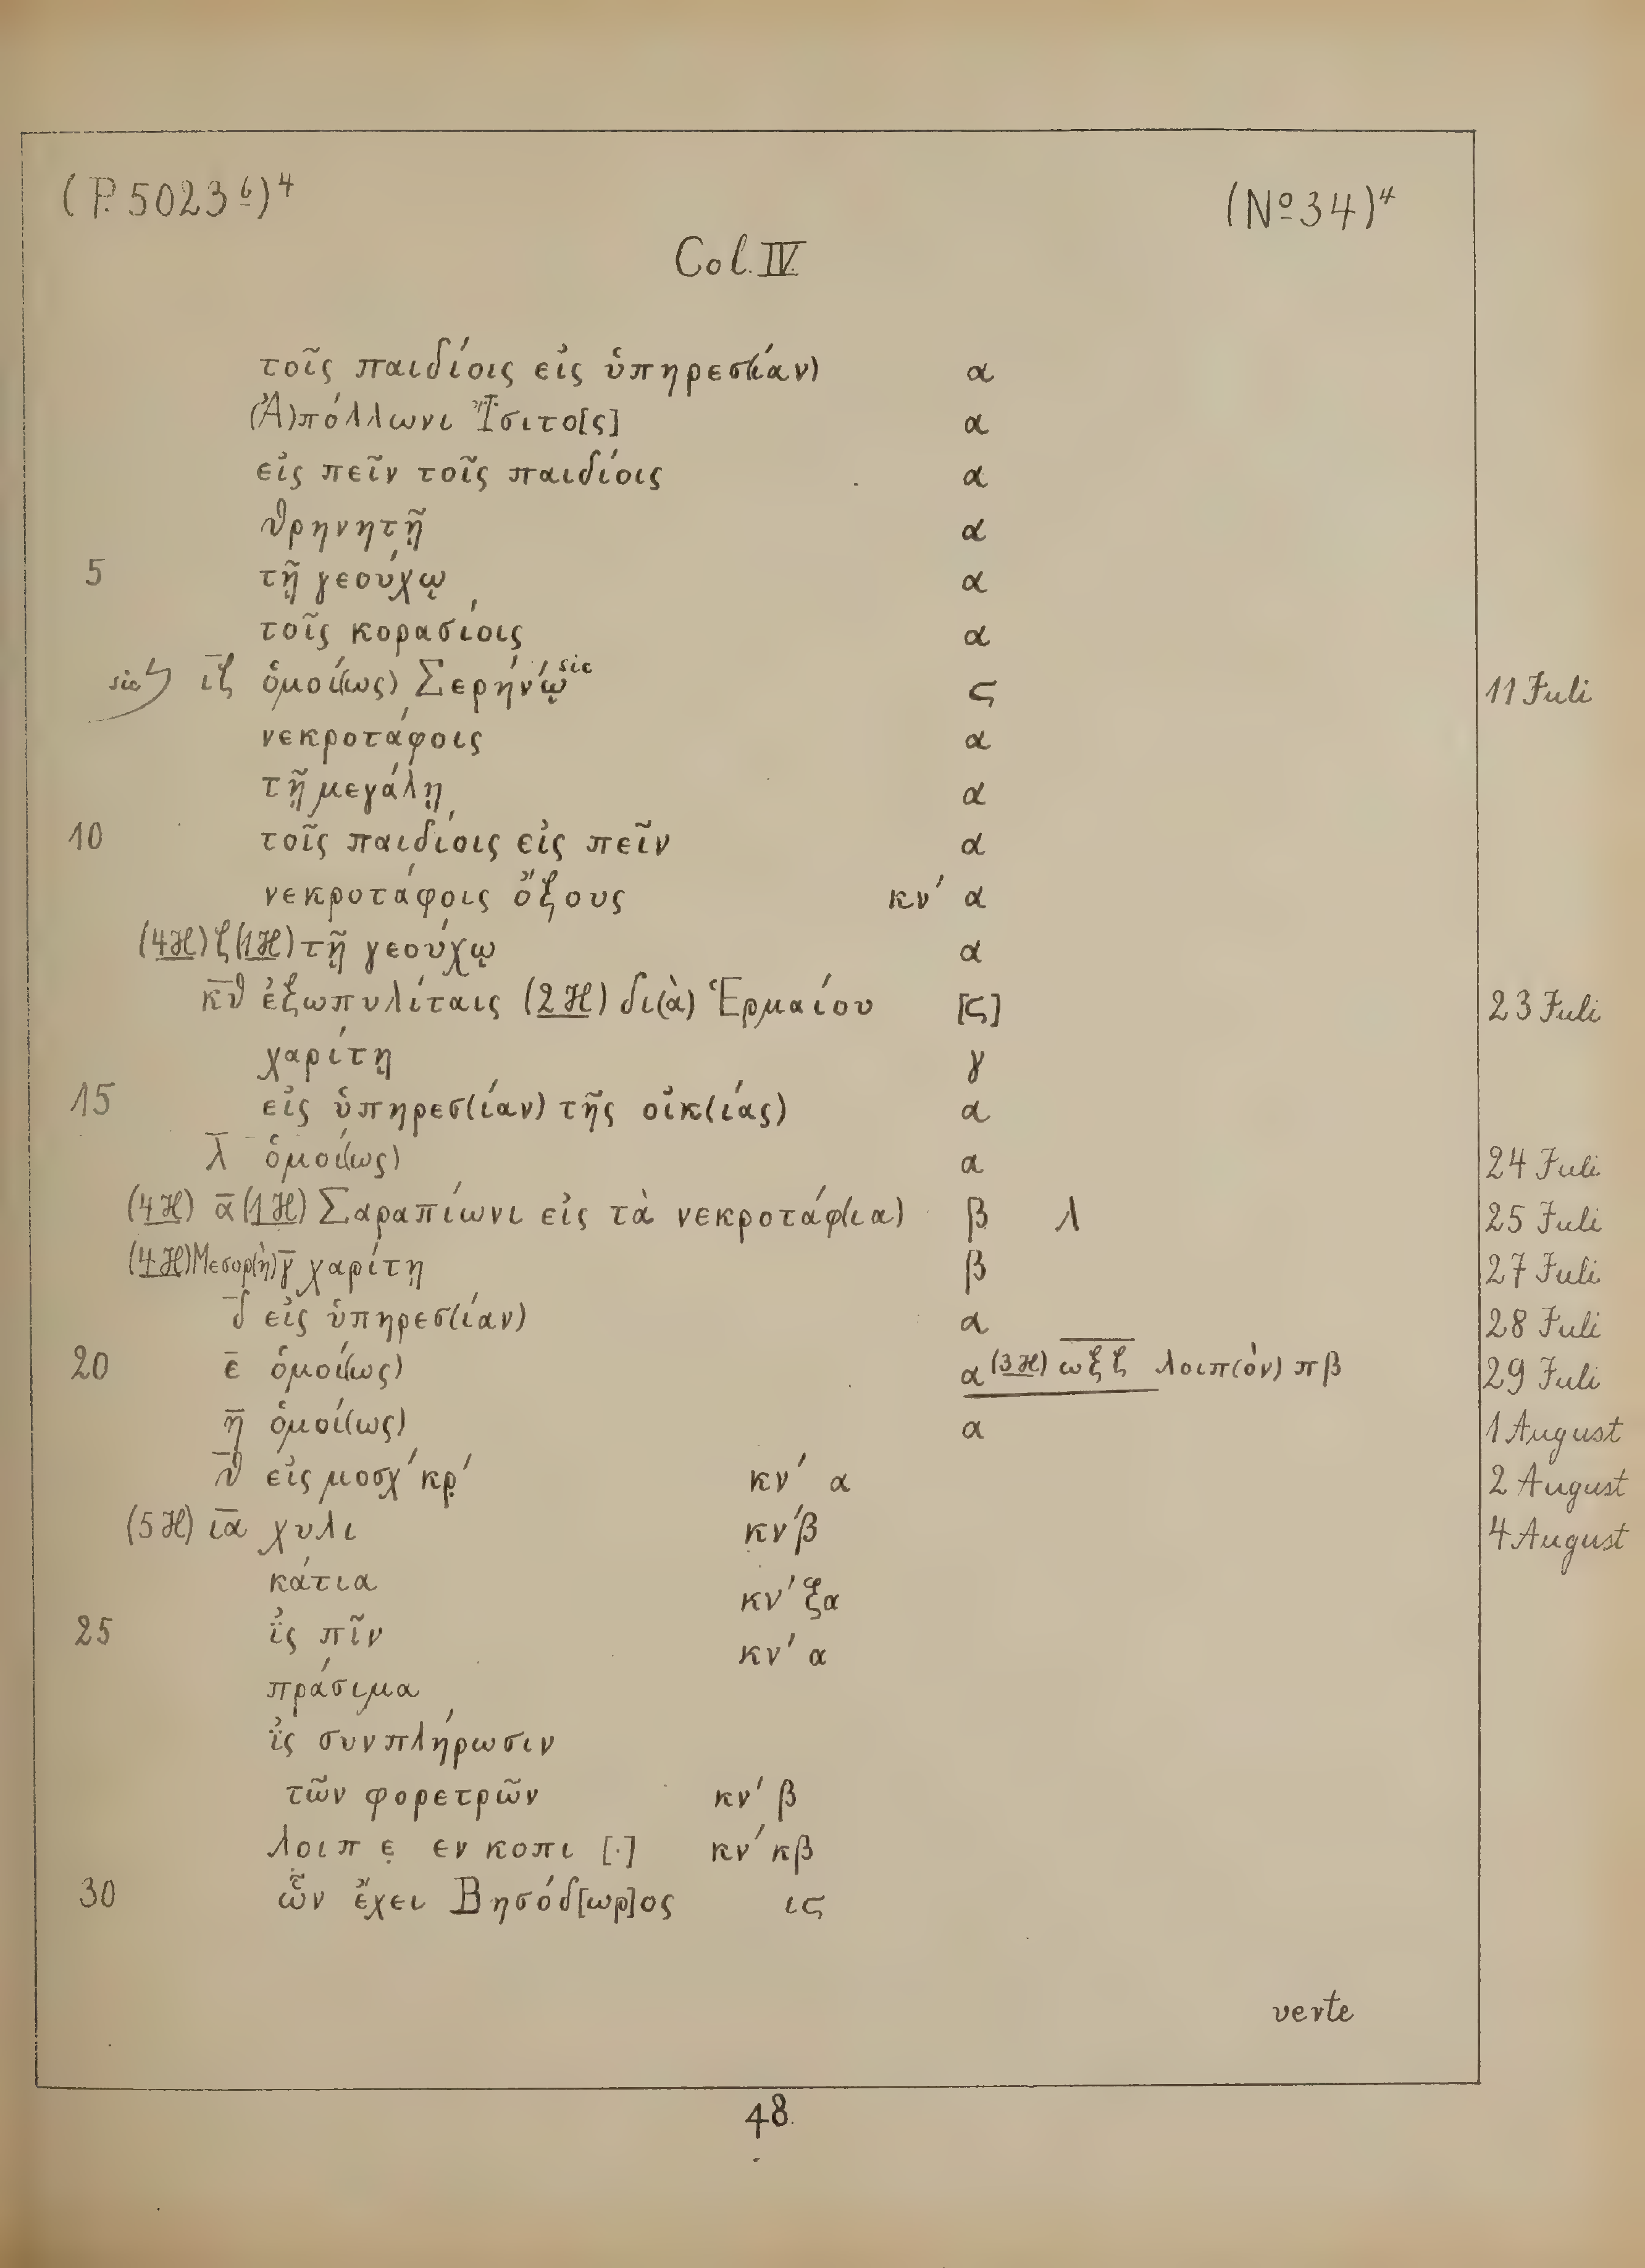 (P. 5023 6)4 (No 34)4
Col. IV.
τοῖς παιδίοις εἰς ὑπηρεσ(ίαν) α
(Ἀ)πόλλωνι Ἴσιτο[ς] α
εἰς πεῖν τοῖς παιδίοις α
θρηνητῇ α
5 τῇ γεούχῳ α
τοῖς κορασίοις α
sic ϟ ι̅ζ ὁμοί(ως) Σερηνίῳ sic ϛ 11 Juli
νεκροτάφοις α
τῇ μεγάλῃ α
10 τοῖς παιδίοις εἰς πεῖν α
νεκροτάφοις ὄξους κν´ α
(4H) ζ (1H) τῇ γεούχῳ α
κ̅θ̅ ἐξωπυλίταις (2H) δι(ὰ) Ἑρμαίου [ϛ] 23 Juli
χαρίτῃ γ
15 εἰς ὑπηρεσ(ίαν) τῆς οἰκ(ίας) α
λ̅ ὁμοί(ως) α 24 Juli
(4H) α̅ (1H) Σαραπίωνι εἰς τὰ νεκροτάφ(ια) β λ 25 Juli
(4H) Μεσορ(ὴ) γ̅ χαρίτῃ β 27 Juli
δ̅ εἰς ὑπηρεσ(ίαν) α 28 Juli
20 ε̅ ὁμοί(ως) α (3H) ω̅ξ̅ζ̅ λοιπ(ὸν) πβ 29 Juli
η̅ ὁμοί(ως) α 1 August
θ̅ εἰς μοσχ´ κρ̣´ κν´ α 2 August
(5H) ι̅α̅ χυλι κν´ β 4 August
κάτια κν´ ξα
25 ἰ̈ς πῖν κν´ α
πράσιμα
ἰ̈ς συνπλήρωσιν
τῶν φορετρῶν κν´ β
λοιπ ε̣ εν κοπι [·] κν´ κβ
30 ὧν ἔχει Βησόδ[ωρ]ος ιϛ
verte
48